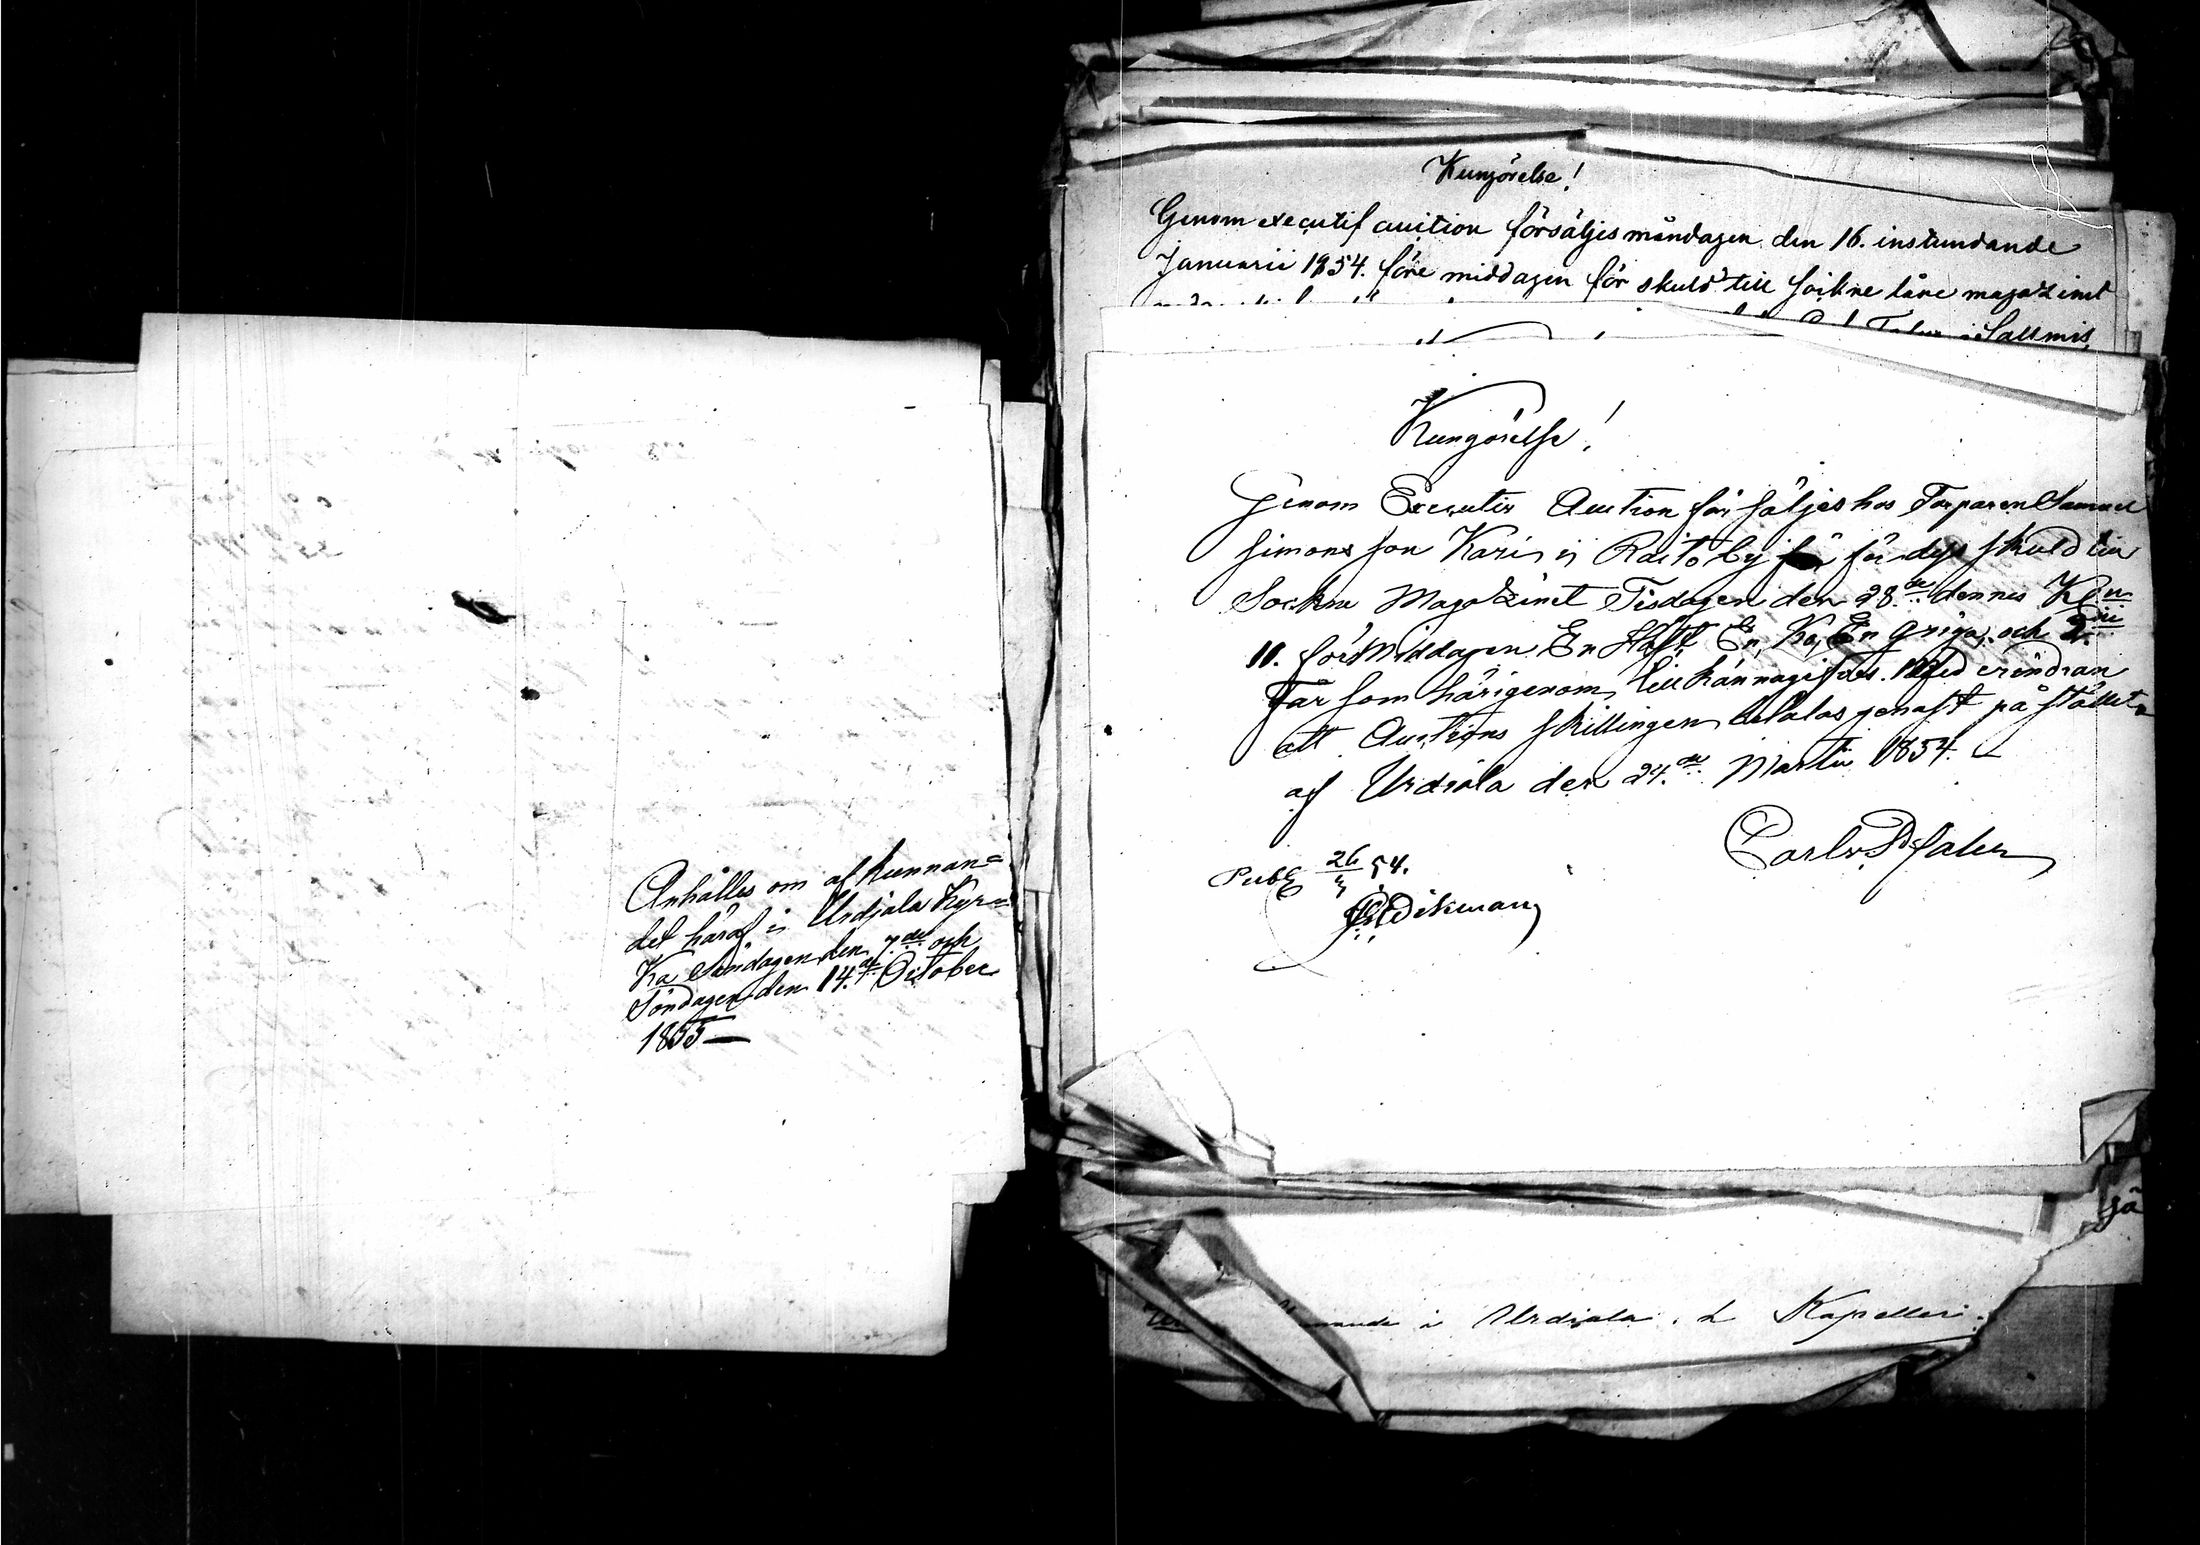 Anhålles om af kunnan=
det häraf i Urdjala Kyr=
ka Söndagen den 7de och
Söndagen den 14de October
1855
Kungörelse!
Genom executif auction försäljes måndagen den 16. instundande
Januarii 1854. före middagen för skuld till sockne låne magazinet
Sallmis
Kungörelse!
Genom Executiv Auction för säljes hos Torparen Samuel
Simons son Kari i Raito by för dess skuld till
Sockne Magatzinet Tisdagen den 28de dennes Kl
10. för Middagen En Häst, En Ko, En Qviga, och 2ne
Får som härigenom till kännagifves. Med erindran
att Auctions skillingen betalas genast på stället,
af Urdiala den 24de Martii 1854.
Publ 26/3 54.
Urdiala
Kapelleri
jä